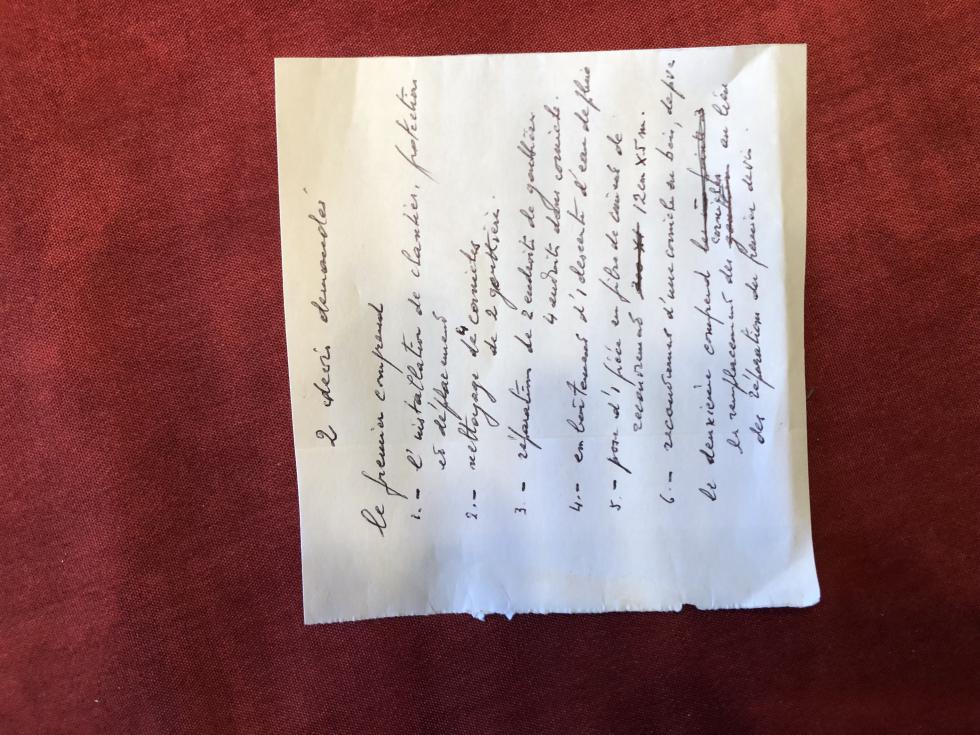 2 devis demandés
le premier comprend
1.- l'installation de chantier, protection
et déplacement
2.- nettoyage de 4 corniches
de 2 gouttière.
3.- réparation de 2 endroits de gouttière
4 endroits de corniche.
4.- emboîtement d'1 descente d'eau de pluie
5.- pose d'1 pièce en
recouvrement 12 cm x 5 m.
6.- recouvrement d'une corniche en bois,
le deuxième comprend
le remplacement des corniches en lieu
des réparations du premier devis.